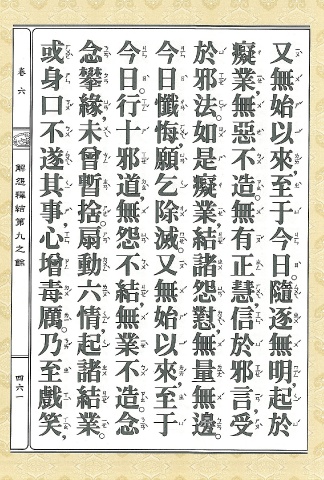 又無始以來,至于今日。隨逐無明,起於
癡業,無惡不造。無有正慧信於邪言,受
於邪法。如是癡業,結諸怨懟,無量無邊。
今日懺悔,願乞除滅。又無始以來,至于
今日。行十邪道,無怨不結,無業不造。念
念攀緣,未曾暫捨。扇動六情,起諸結業。
或身口不遂其事,心增毒厲。乃至戲笑,
卷六
解怨釋結第九之餘
四六一